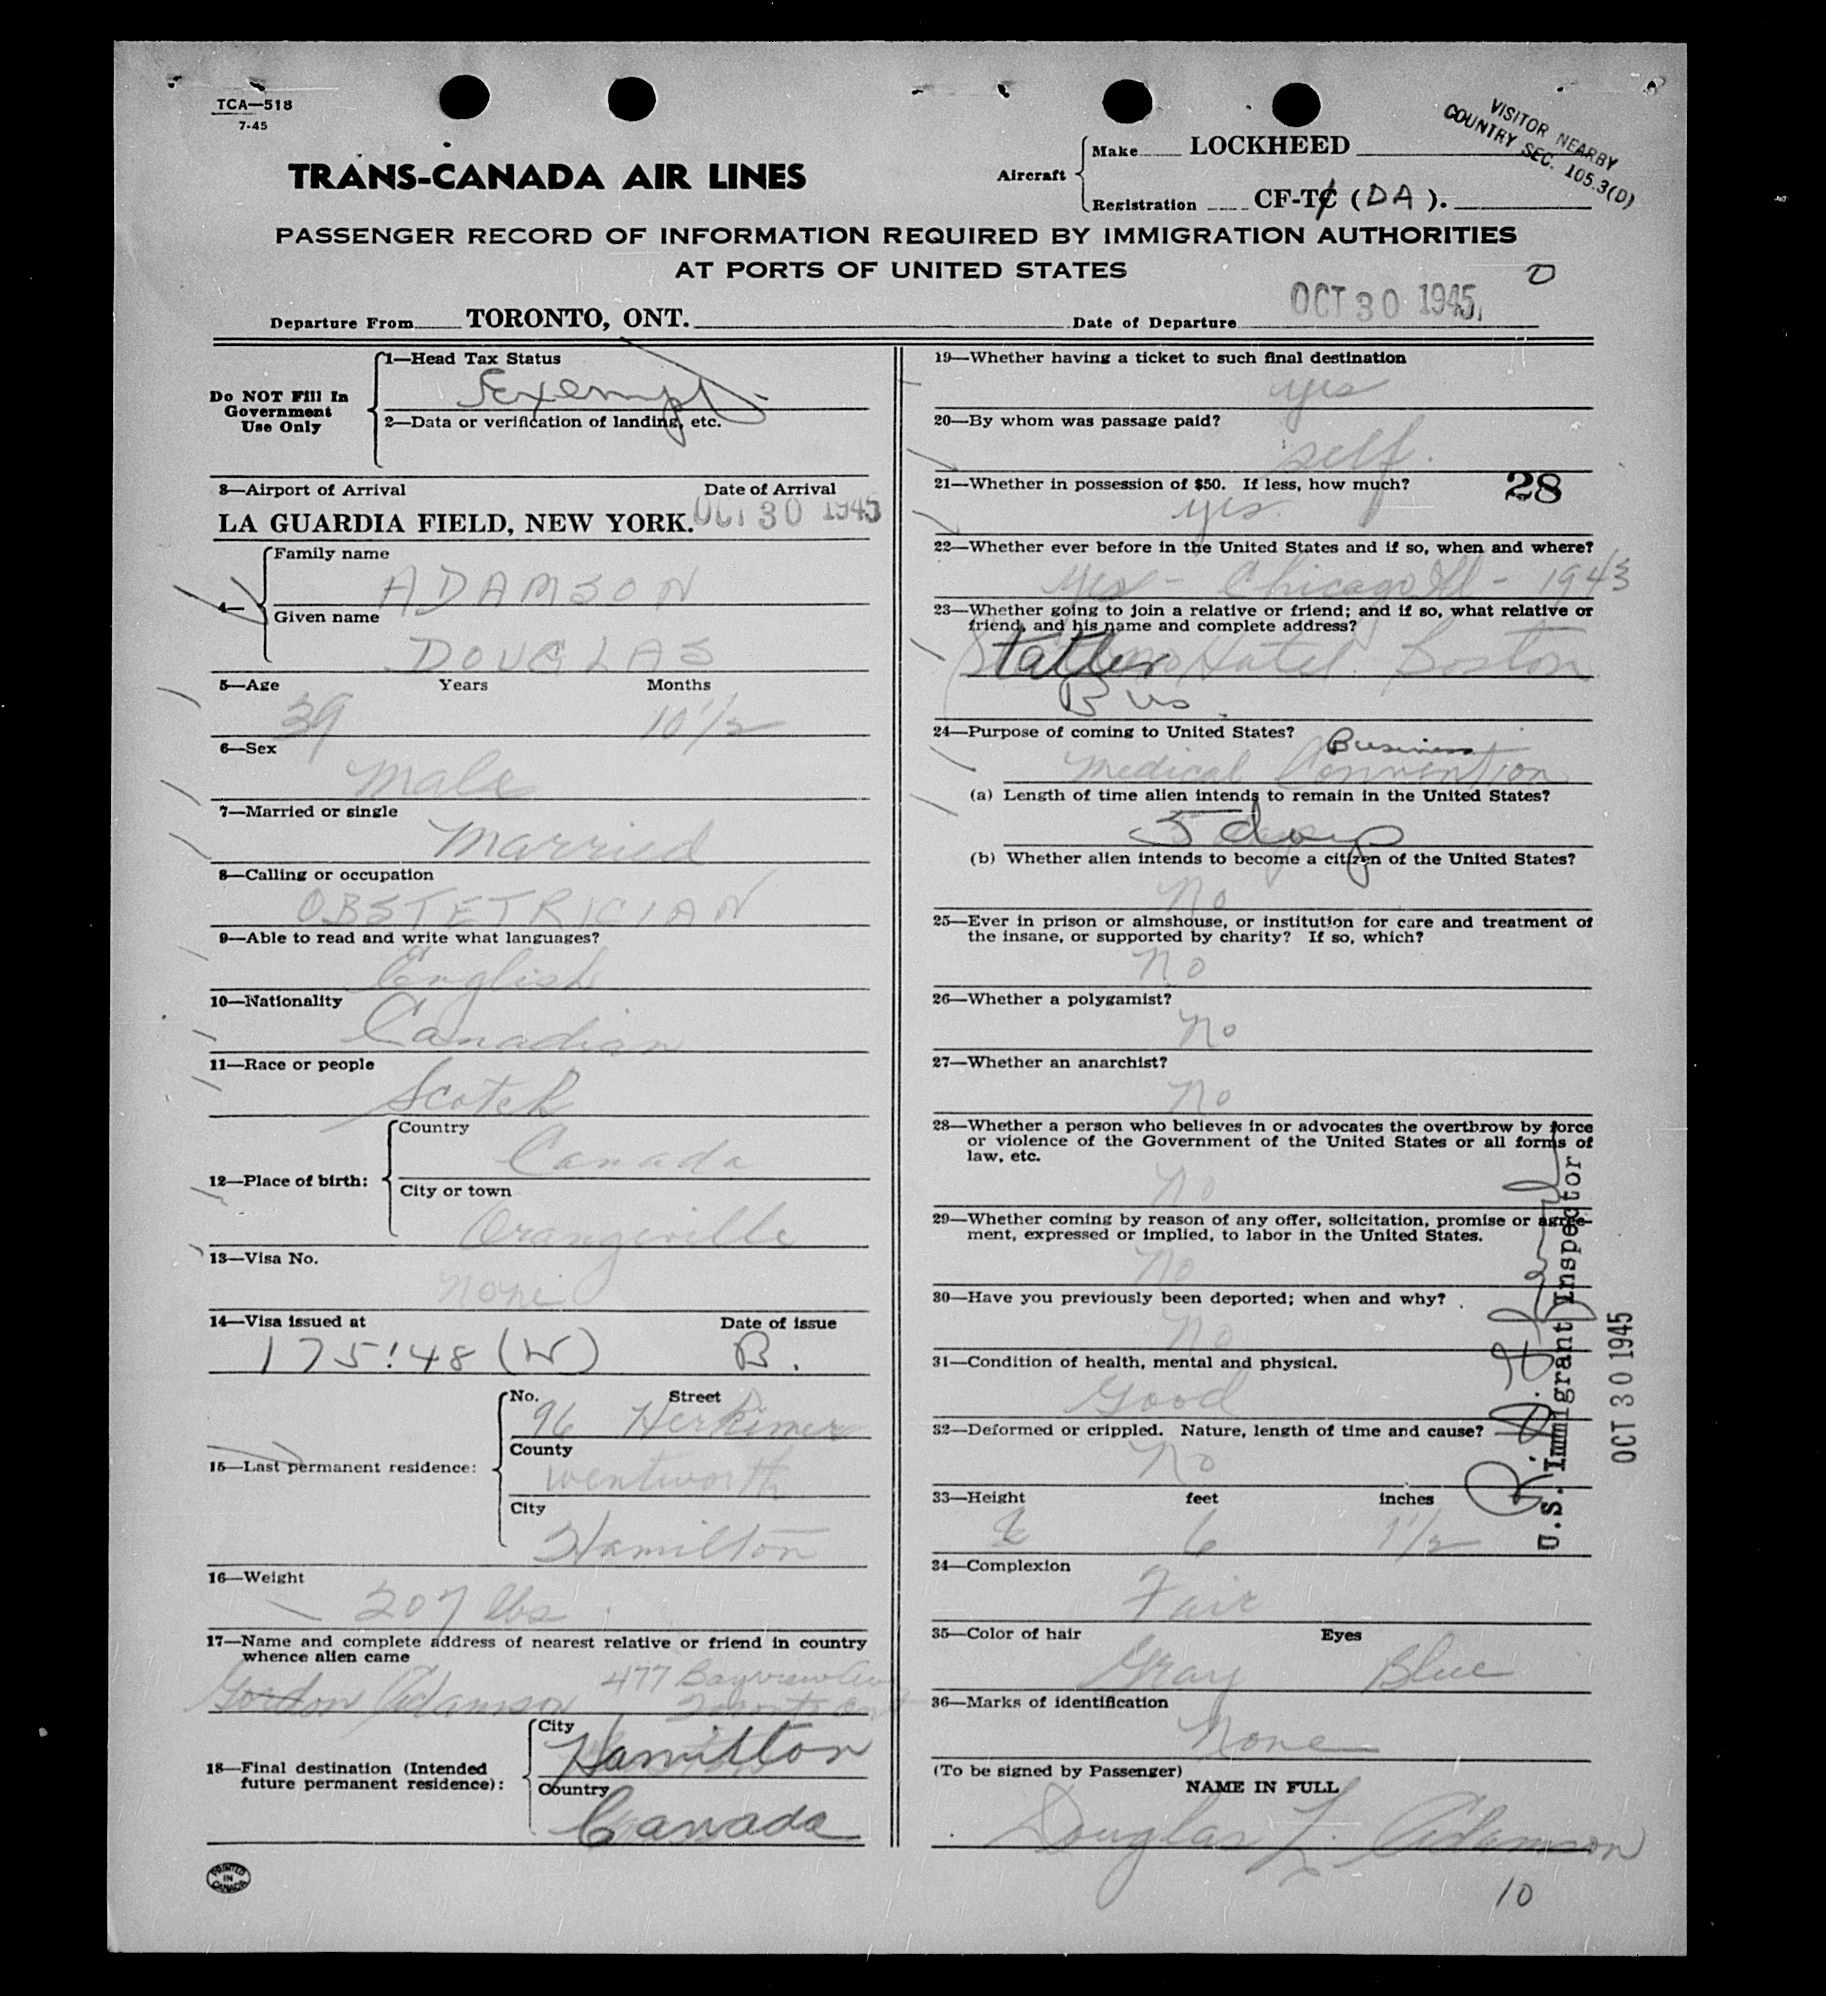 TCA—518
7-45
VISITOR NEARBY
COUNTRY SEC. 105.3(D)
TRANS-CANADA AIR LINES
Aircraft
Make LOCKHEED
Registration CF-TC (DA).
PASSENGER RECORD OF INFORMATION REQUIRED BY IMMIGRATION AUTHORITIES
AT PORTS OF UNITED STATES
Departure From TORONTO, ONT. Date of Departure OCT 30 1945
Do NOT Fill In
Government
Use Only
1—Head Tax Status
Exempt
2—Data or verification of landing, etc.
3—Airport of Arrival Date of Arrival
LA GUARDIA FIELD, NEW YORK. OCT 30 1945
4—
Family name
ADAMSON
Given name
DOUGLAS
5—Age Years Months
39 10 1/2
6—Sex
Male
7—Married or single
Married
8—Calling or occupation
OBSTETRICIAN
9—Able to read and write what languages?
English
10—Nationality
Canadian
11—Race or people
Scotch
12—Place of birth:
Country
Canada
City or town
Orangeville
13—Visa No.
None
14—Visa issued at Date of issue
175!48 (W) B.
15—Last permanent residence:
No. Street
96 Herkimer
County
Wentworth
City
Hamilton
16—Weight
207 lbs
17—Name and complete address of nearest relative or friend in country
whence alien came
477 Bayview Ave
Gordon Adamson Toronto Ont
18—Final destination (Intended
future permanent residence):
City
Hamilton
Country
Canada
PRINTED
IN
CANADA
19—Whether having a ticket to such final destination
yes
20—By whom was passage paid?
self.
21—Whether in possession of $50. If less, how much? 28
yes.
22—Whether ever before in the United States and if so, when and where?
Yes - Chicago Ill - 1943
23—Whether going to join a relative or friend; and if so, what relative or
friend, and his name and complete address?
Statler Hotel Boston
Bus.
24—Purpose of coming to United States? Business
Medical Convention
(a) Length of time alien intends to remain in the United States?
5 days
(b) Whether alien intends to become a citizen of the United States?
No
25—Ever in prison or almshouse, or institution for care and treatment of
the insane, or supported by charity? If so, which?
No
26—Whether a polygamist?
No
27—Whether an anarchist?
No
28—Whether a person who believes in or advocates the overthrow by force
or violence of the Government of the United States or all forms of
law, etc.
No
29—Whether coming by reason of any offer, solicitation, promise or agree-
ment, expressed or implied, to labor in the United States.
No
30—Have you previously been deported; when and why?
No
31—Condition of health, mental and physical.
Good
32—Deformed or crippled. Nature, length of time and cause?
No
33—Height feet inches
6 1 1/2
34—Complexion
Fair
35—Color of hair Eyes
Gray Blue
36—Marks of identification
None
(To be signed by Passenger)
NAME IN FULL
Douglas L. Adamson
10
U.S. Immigrant Inspector
OCT 30 1945